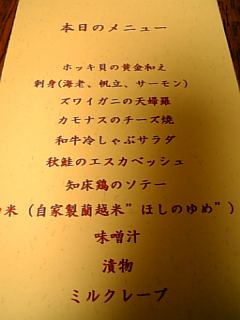 本日のメニュー
ホッキ貝の黄金和え
刺身(海老、帆立、サーモン)
ズワイガニの天婦羅
カモナスのチーズ焼
和牛冷しゃぶサラダ
秋鮭のエスカベッシュ
知床鶏のソテー
米（自家製蘭越米"ほしのゆめ"）
味噌汁
漬物
ミルクレープ